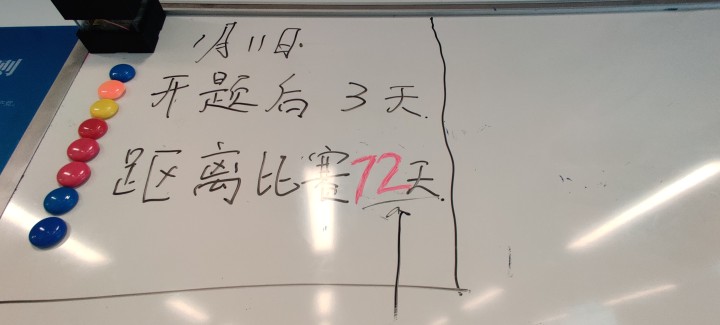 1月11日.
开题后 3天.
距离比赛72天.